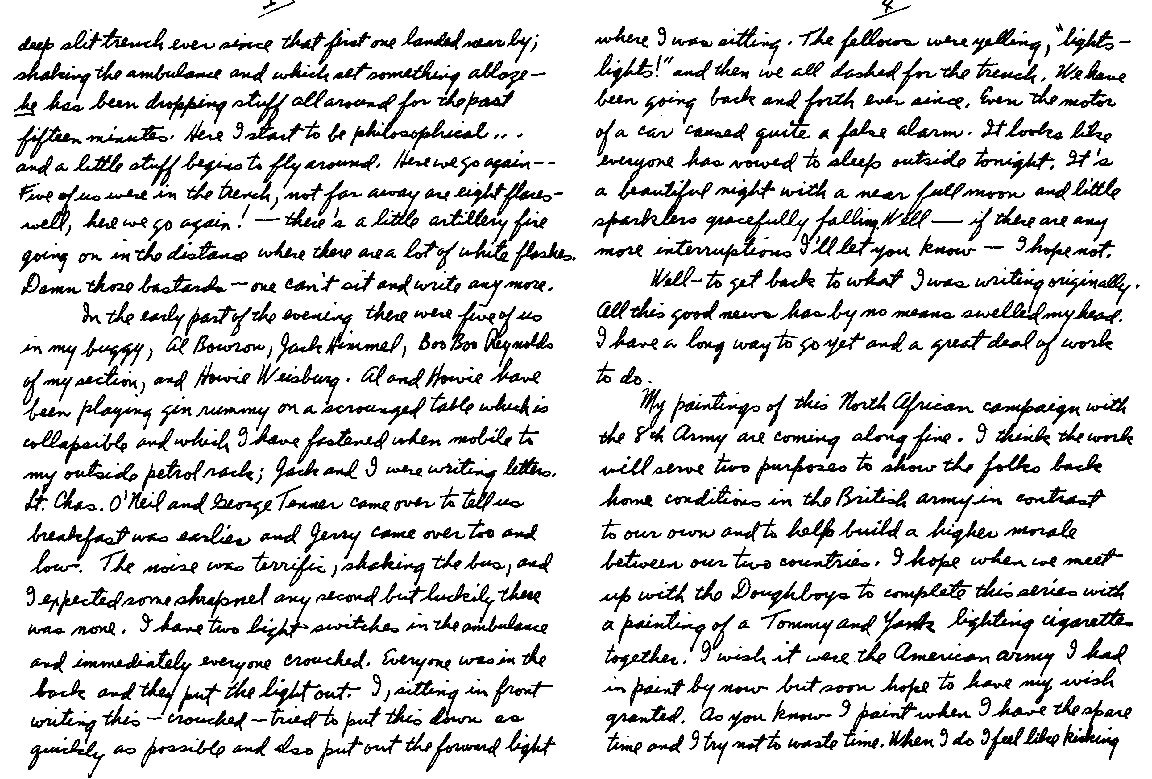 deep slit trench ever since that first one landed near by;
shaking the ambulance and which set something ablaze —
he has been dropping stuff all around for the past
fifteen minutes. Here I start to be philosophical ...
and a little stuff begins to fly around. Here we go again --
Five of us were in the trench, not far away are eight flares —
well, here we go again! — there's a little artillery fire
going on in the distance where there are a lot of white flashes.
Damn those bastards — one can't sit and write any more.
In the early part of the evening there were five of us
in my buggy, Al Bowron, Jack Himmel, Boo Boo Reynolds
of my section, and Howie Weisburg. Al and Howie have
been playing gin rummy on a scrounged table which is
collapsible and which I have fastened when mobile to
my outside petrol rack; Jack and I were writing letters.
Lt. Chas. O'Neil and George Tenner came over to tell us
breakfast was earlier and Jerry came over too and
low. The noise was terrific, shaking the bus, and
I expected some shrapnel any second but luckily there
was none. I have two light switches in the ambulance
and immediately everyone crouched. Everyone was in the
back and they put the light out. I, sitting in front
writing this — crouched — tried to put this down as
quickly as possible and also put out the forward light
4
where I was sitting. The fellows were yelling, "lights —
lights!" and then we all dashed for the trench. We have
been going back and forth ever since. Even the motor
of a car caused quite a false alarm. It looks like
everyone has vowed to sleep outside tonight. It's
a beautiful night with a near full moon and little
sparklers gracefully falling. Well — if there are any
more interruptions I'll let you know — I hope not.
Well — to get back to what I was writing originally.
All this good news has by no means swelled my head.
I have a long way to go yet and a great deal of work
to do.
My paintings of this North African campaign with
the 8th Army are coming along fine. I think the work
will serve two purposes to show the folks back
home conditions in the British army in contrast
to our own and to help build a higher morale
between our two countries. I hope when we meet
up with the Doughboys to complete this series with
a painting of a Tommy and Yank lighting cigarettes
together. I wish it were the American army I had
in paint by now but soon hope to have my wish
granted. As you know I paint when I have the spare
time and I try not to waste time. When I do I feel like kicking